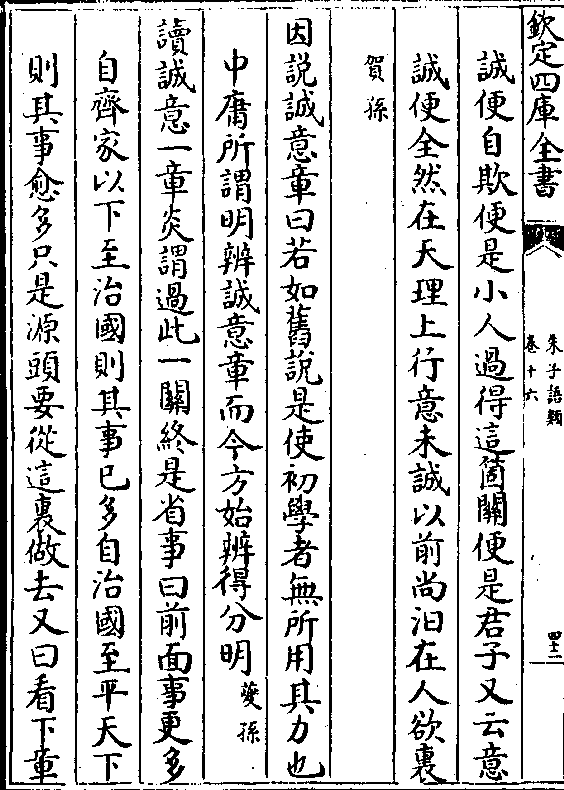 欽定四庫全書
朱子語類
卷十六
四十二
誠便自欺便是小人過得這箇關便是君子又云意
誠便全然在天理上行意未誠以前尚汩在人欲裏
賀孫
因說誠意章曰若如舊說是使初學者無所用其力也
中庸所謂明辨誠意章而今方始辨得分明 夔孫
讀誠意一章炎謂過此一關終是省事曰前面事更多
自齊家以下至治國則其事已多自治國至平天下
則其事愈多只是源頭要從這裏做去又曰看下章